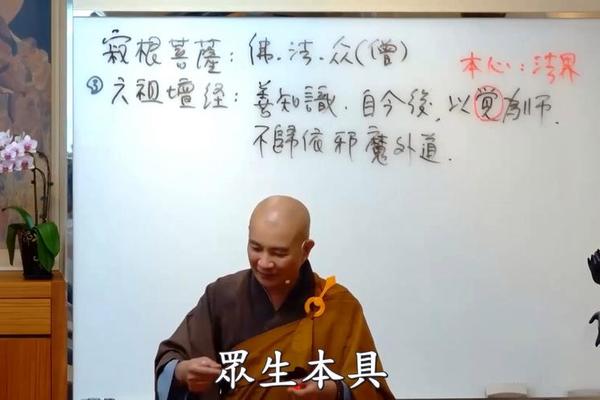 寂根菩薩：佛．法．众(僧)
本心：法界
③六祖壇经：善知識．自今後，以覚為師．
不歸依邪魔外道．
眾生本具